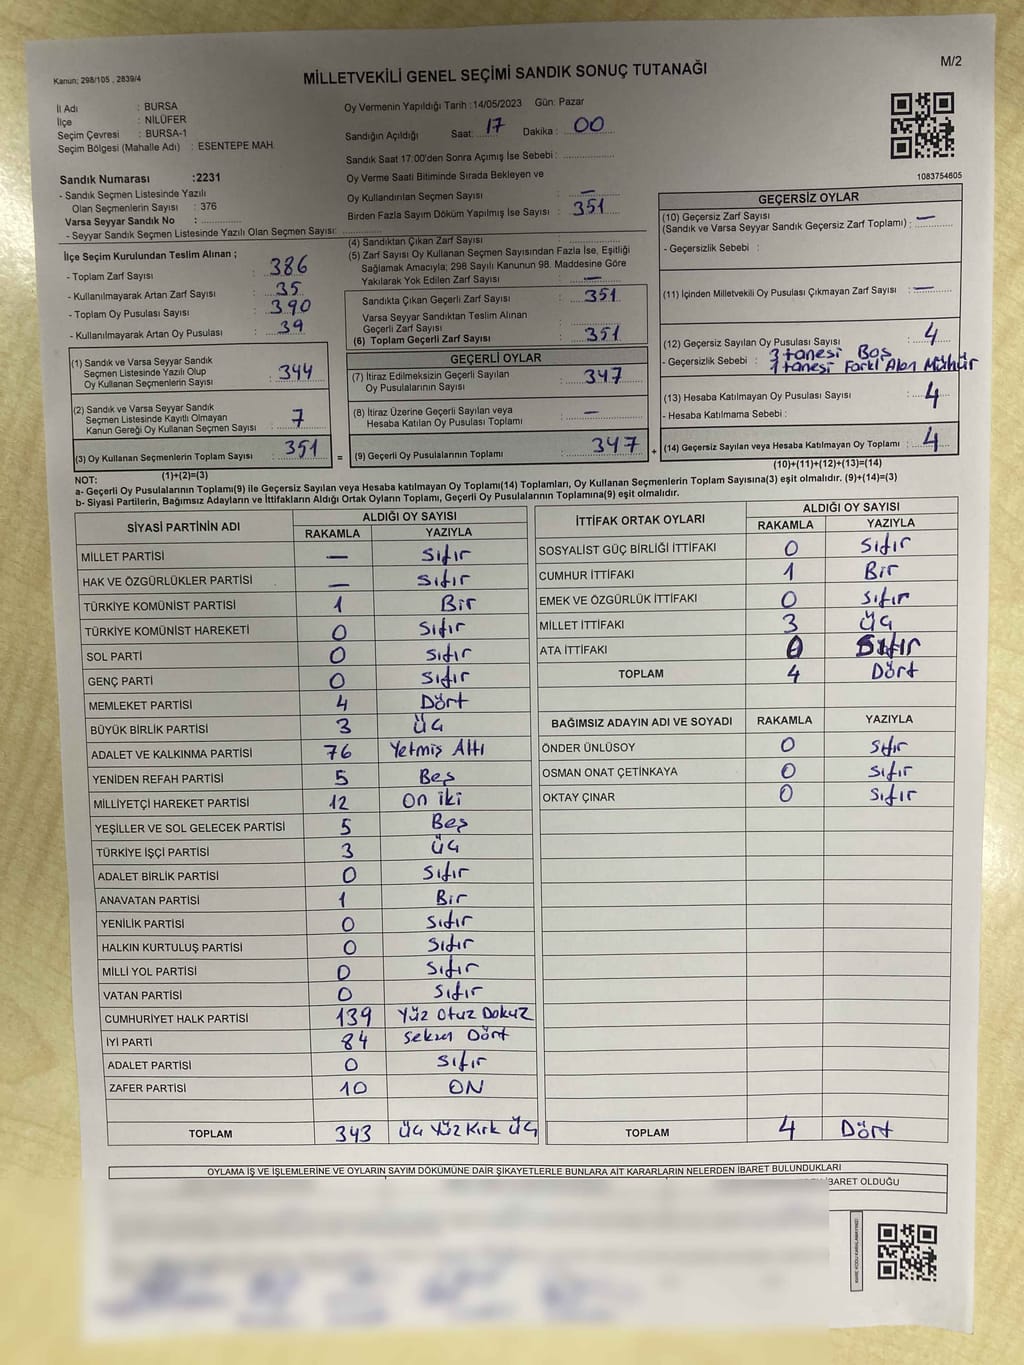 Kanun; 298/105 , 2839/4
MİLLETVEKİLİ GENEL SEÇİMİ SANDIK SONUÇ TUTANAĞI
M/2
İl Adı : BURSA
İlçe : NİLÜFER
Seçim Çevresi : BURSA-1
Seçim Bölgesi (Mahalle Adı) : ESENTEPE MAH.
Oy Vermenin Yapıldığı Tarih :14/05/2023 Gün: Pazar
Sandığın Açıldığı Saat: 17 Dakika : 00
Sandık Saat 17:00'den Sonra Açımış İse Sebebi : ..............
Oy Verme Saati Bitiminde Sırada Bekleyen ve
Oy Kullandırılan Seçmen Sayısı : —
Birden Fazla Sayım Döküm Yapılmış İse Sayısı : 351
1083754605
Sandık Numarası :2231
- Sandık Seçmen Listesinde Yazılı
Olan Seçmenlerin Sayısı : 376
Varsa Seyyar Sandık No : ..............
- Seyyar Sandık Seçmen Listesinde Yazılı Olan Seçmen Sayısı: ..............
İlçe Seçim Kurulundan Teslim Alınan ;
- Toplam Zarf Sayısı : 386
- Kullanılmayarak Artan Zarf Sayısı : 35
- Toplam Oy Pusulası Sayısı : 390
- Kullanılmayarak Artan Oy Pusulası : 39
(1) Sandık ve Varsa Seyyar Sandık
Seçmen Listesinde Yazılı Olup
Oy Kullanan Seçmenlerin Sayısı : 344
(2) Sandık ve Varsa Seyyar Sandık
Seçmen Listesinde Kayıtlı Olmayan
Kanun Gereği Oy Kullanan Seçmen Sayısı : 7
(3) Oy Kullanan Seçmenlerin Toplam Sayısı : 351
(1)+(2)=(3)
(4) Sandıktan Çıkan Zarf Sayısı : ..............
(5) Zarf Sayısı Oy Kullanan Seçmen Sayısından Fazla İse, Eşitliği
Sağlamak Amacıyla; 298 Sayılı Kanunun 98. Maddesine Göre
Yakılarak Yok Edilen Zarf Sayısı : —
Sandıkta Çıkan Geçerli Zarf Sayısı : 351
Varsa Seyyar Sandıktan Teslim Alınan
Geçerli Zarf Sayısı : ..............
(6) Toplam Geçerli Zarf Sayısı : 351
GEÇERLİ OYLAR
(7) İtiraz Edilmeksizin Geçerli Sayılan
Oy Pusulalarının Sayısı : 347
(8) İtiraz Üzerine Geçerli Sayılan veya
Hesaba Katılan Oy Pusulası Toplamı : —
= (9) Geçerli Oy Pusulalarının Toplamı : 347 +
GEÇERSİZ OYLAR
(10) Geçersiz Zarf Sayısı
(Sandık ve Varsa Seyyar Sandık Geçersiz Zarf Toplamı) : —
- Geçersizlik Sebebi :
(11) İçinden Milletvekili Oy Pusulası Çıkmayan Zarf Sayısı : —
(12) Geçersiz Sayılan Oy Pusulası Sayısı : 4
- Geçersizlik Sebebi : 3 tanesi Boş
1 tanesi Farklı Alan Mühür
(13) Hesaba Katılmayan Oy Pusulası Sayısı : 4
- Hesaba Katılmama Sebebi :
(14) Geçersiz Sayılan veya Hesaba Katılmayan Oy Toplamı : 4
(10)+(11)+(12)+(13)=(14)
NOT:
a- Geçerli Oy Pusulalarının Toplamı(9) ile Geçersiz Sayılan veya Hesaba katılmayan Oy Toplamı(14) Toplamları, Oy Kullanan Seçmenlerin Toplam Sayısına(3) eşit olmalıdır. (9)+(14)=(3)
b- Siyasi Partilerin, Bağımsız Adayların ve İttifakların Aldığı Ortak Oyların Toplamı, Geçerli Oy Pusulalarının Toplamına(9) eşit olmalıdır.
SİYASİ PARTİNİN ADI ALDIĞI OY SAYISI
RAKAMLA YAZIYLA
MİLLET PARTİSİ — Sıfır
HAK VE ÖZGÜRLÜKLER PARTİSİ — Sıfır
TÜRKİYE KOMÜNİST PARTİSİ 1 Bir
TÜRKİYE KOMÜNİST HAREKETİ 0 Sıfır
SOL PARTİ 0 Sıfır
GENÇ PARTİ 0 Sıfır
MEMLEKET PARTİSİ 4 Dört
BÜYÜK BİRLİK PARTİSİ 3 Üç
ADALET VE KALKINMA PARTİSİ 76 Yetmiş Altı
YENİDEN REFAH PARTİSİ 5 Beş
MİLLİYETÇİ HAREKET PARTİSİ 12 On iki
YEŞİLLER VE SOL GELECEK PARTİSİ 5 Beş
TÜRKİYE İŞÇİ PARTİSİ 3 Üç
ADALET BİRLİK PARTİSİ 0 Sıfır
ANAVATAN PARTİSİ 1 Bir
YENİLİK PARTİSİ 0 Sıfır
HALKIN KURTULUŞ PARTİSİ 0 Sıfır
MİLLİ YOL PARTİSİ 0 Sıfır
VATAN PARTİSİ 0 Sıfır
CUMHURİYET HALK PARTİSİ 139 Yüz Otuz Dokuz
İYİ PARTİ 84 Seksen Dört
ADALET PARTİSİ 0 Sıfır
ZAFER PARTİSİ 10 ON
TOPLAM 343 Üç Yüz Kırk Üç
İTTİFAK ORTAK OYLARI ALDIĞI OY SAYISI
RAKAMLA YAZIYLA
SOSYALİST GÜÇ BİRLİĞİ İTTİFAKI 0 Sıfır
CUMHUR İTTİFAKI 1 Bir
EMEK VE ÖZGÜRLÜK İTTİFAKI 0 Sıfır
MİLLET İTTİFAKI 3 Üç
ATA İTTİFAKI 0 Sıfır
TOPLAM 4 Dört
BAĞIMSIZ ADAYIN ADI VE SOYADI RAKAMLA YAZIYLA
ÖNDER ÜNLÜSOY 0 Sıfır
OSMAN ONAT ÇETİNKAYA 0 Sıfır
OKTAY ÇINAR 0 Sıfır
TOPLAM 4 Dört
OYLAMA İŞ VE İŞLEMLERİNE VE OYLARIN SAYIM DÖKÜMÜNE DAİR ŞİKAYETLERLE BUNLARA AİT KARARLARIN NELERDEN İBARET BULUNDUKLARI
İBARET OLDUĞU